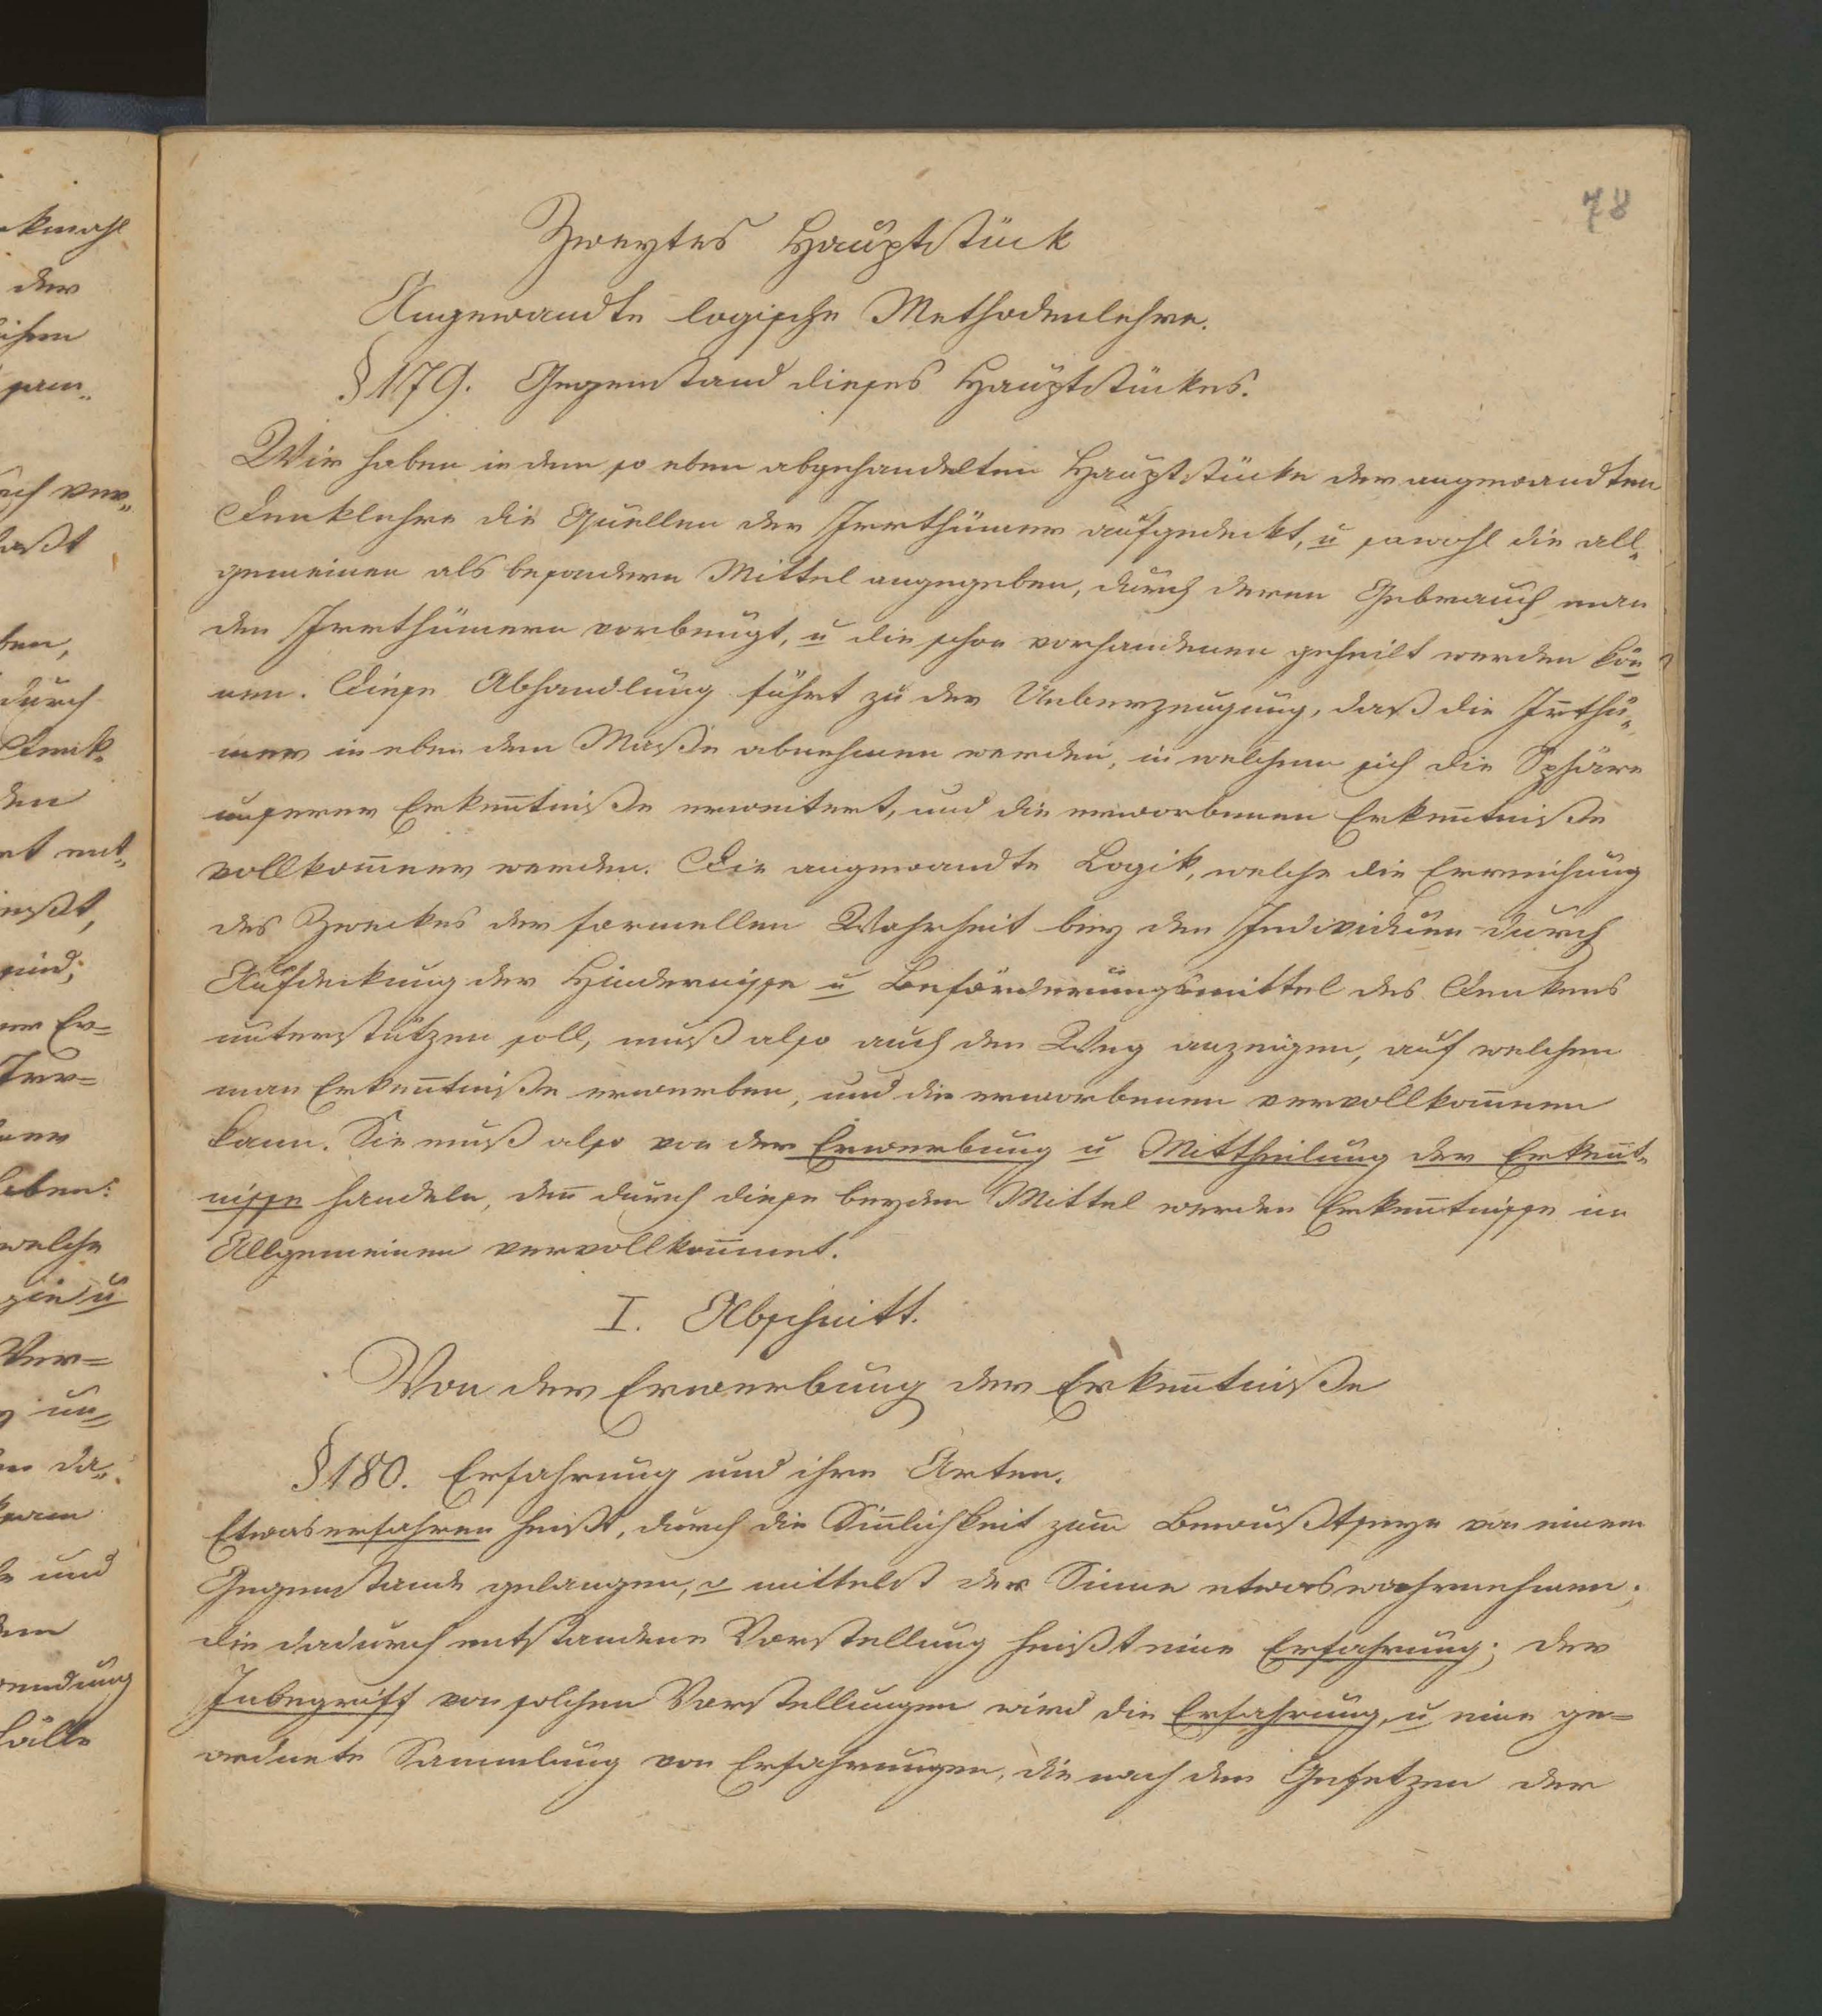 78
Zweytes Hauptstück
Angewandte logische Methodenlehre.
§ 179. Gegenstand dieses Hauptstückes.
Wir haben in dem so eben abgehandelten Hauptstücke der angewandten
Denklehre die Quellen der Irrthümer aufgedeckt, u sowohl die all„
gemeinen als besondern Mittel angegeben, durch deren Gebrauch man
den Irrthümern vorbeugt, u die schon vorhandenen geheilt werden kön̅
nen. Diese Abhandlung führt zu der Ueberzeugung, daß die Ir̅thü„
mer in eben dem Maße abnehmen werden, in welchem sich die Sphäre
unserer Erken̅tniße erweitert, und die erworbenen Erken̅tniße
vollkom̅ner werden. Die angewandte Logik, welche die Erreichung
des Zweckes der formellen Wahrheit bey den Individuen durch
Aufdeckung der Hindernisse u Beförderungsmittel des Denkens
unterstützen soll, muß also auch den Weg anzeigen, auf welchem
man Erken̅tniße erwerben, und die erworbenen vervollkom̅nen
kann. Sie muß also von der Erwerbung u Mittheilung der Erken̅t„
nisse handeln, den̅ durch diese beyden Mittel werden Erken̅tnisse im
Allgemeinen vervollkom̅net.
I. Abschnitt.
Von der Erwerbung der Erken̅tniße
§ 180. Erfahrung und ihre Arten.
Etwas erfahren heißt, durch die Sin̅lichkeit zum Bewußtseyn von einem
Gegenstande gelangen, o mittelst der Sinne etwas wahrnehmen;
die dadurch entstandene Vorstellung heißt eine Erfahrung; der
Inbegriff von solchen Vorstellungen wird die Erfahrung, u eine ge=
ordnete Sammlung von Erfahrungen, die nach den Gesetzen der